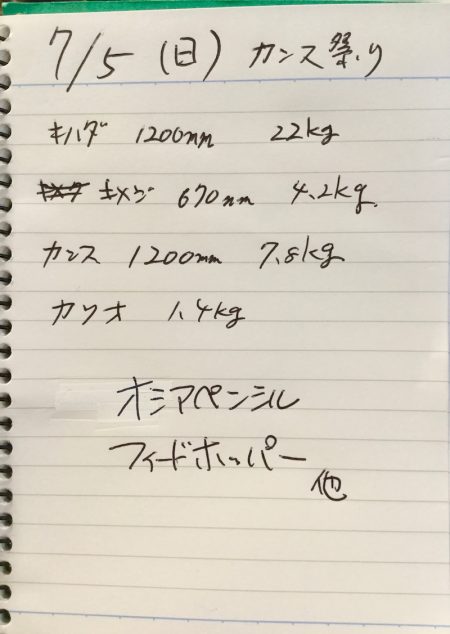 7/5(日) カンス祭り
キハダ 1200mm 22kg
キメジ 670mm 4.2kg.
カンス 1200mm 7.8kg
カツオ 1.4kg
オシアペンシル
フィードホッパー
他